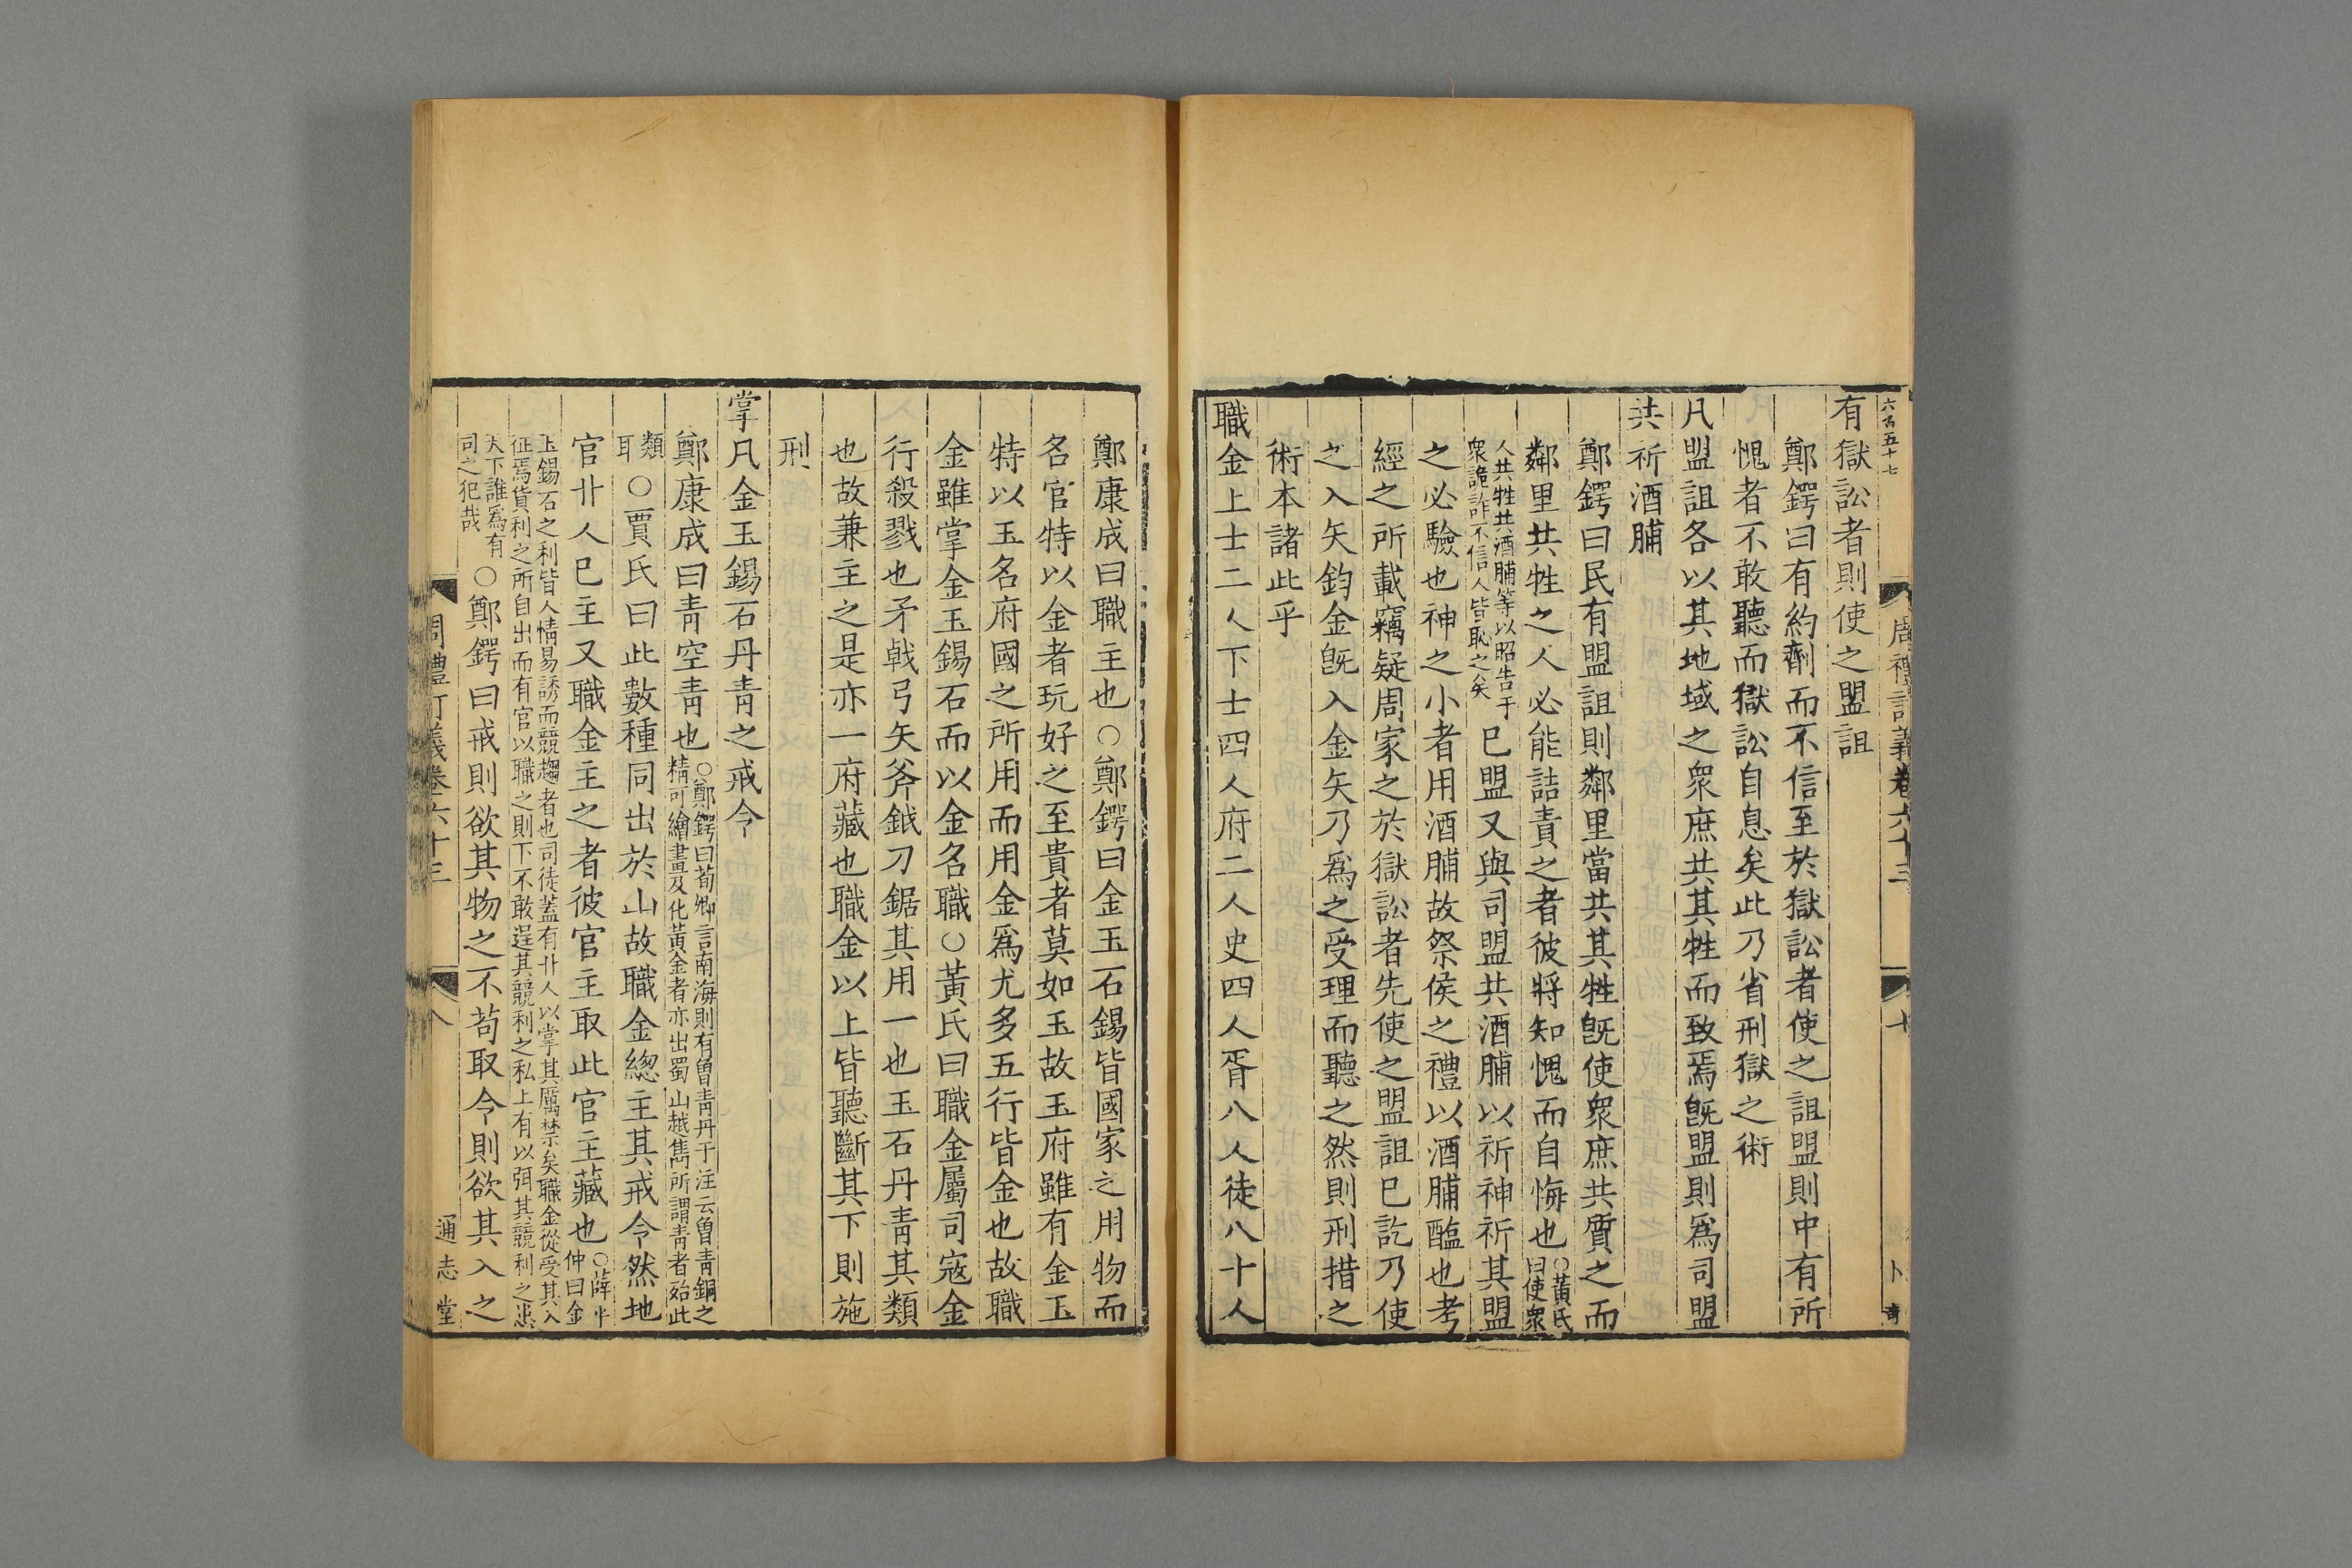 有獄訟者則使之盟詛
鄭鍔曰有約劑而不信至於獄訟者使之詛盟則中有所
愧者不敢聽而獄訟自息矣此乃省刑獄之術
凡盟詛各以其地域之衆庶共其牲而致焉旣盟則爲司盟
共祈酒脯
鄭鍔曰民有盟詛則鄰里當共其牲旣使衆庶共質之而
鄰里共牲之人必能詰責之者彼將知愧而自悔也○黃氏曰使衆
人共牲共酒脯等以昭告于衆詭詐不信人皆恥之矣已盟又與司盟共酒脯以祈神祈其盟
之必驗也神之小者用酒脯故祭侯之禮以酒脯醢也考
經之所載竊疑周家之於獄訟者先使之盟詛已訖乃使
之入矢鈞金旣入金矢乃爲之受理而聽之然則刑措之
術本諸此乎
職金上士二人下士四人府二人史四人胥八人徒八十人
周禮訂義卷六十三
鄭康成曰職主也○鄭鍔曰金玉石錫皆國家之用物而
名官特以金者玩好之至貴者莫如玉故玉府雖有金玉
特以玉名府國之所用而用金爲尤多五行皆金也故職
金雖掌金玉錫石而以金名職○黃氏曰職金屬司寇金
行殺戮也矛戟弓矢斧鉞刀鋸其用一也玉石丹靑其類
也故兼主之是亦一府藏也職金以上皆聽斷其下則施
刑
掌凡金玉錫石丹靑之戒令
鄭康成曰靑空靑也○鄭鍔曰荀卿言南海則有曾靑丹于注云曾靑銅之精可繪畫及化黃金者亦出蜀山越嶲所謂靑者殆此
類耳○賈氏曰此數種同出於山故職金緫主其戒令然地
官卝人巳主又職金主之者彼官主取此官主藏也○薛平仲曰金
玉錫石之利皆人情易誘而競趨者也司徒蓋有卝人以掌其厲禁矣職金從受其入征焉貨利之所自出而有官以職之則下不敢逞其競利之私上有以弭其競利之患
天下誰爲有司之犯哉○鄭鍔曰戒則欲其物之不苟取令則欲其入之
周禮訂義卷六十三
八
通志堂